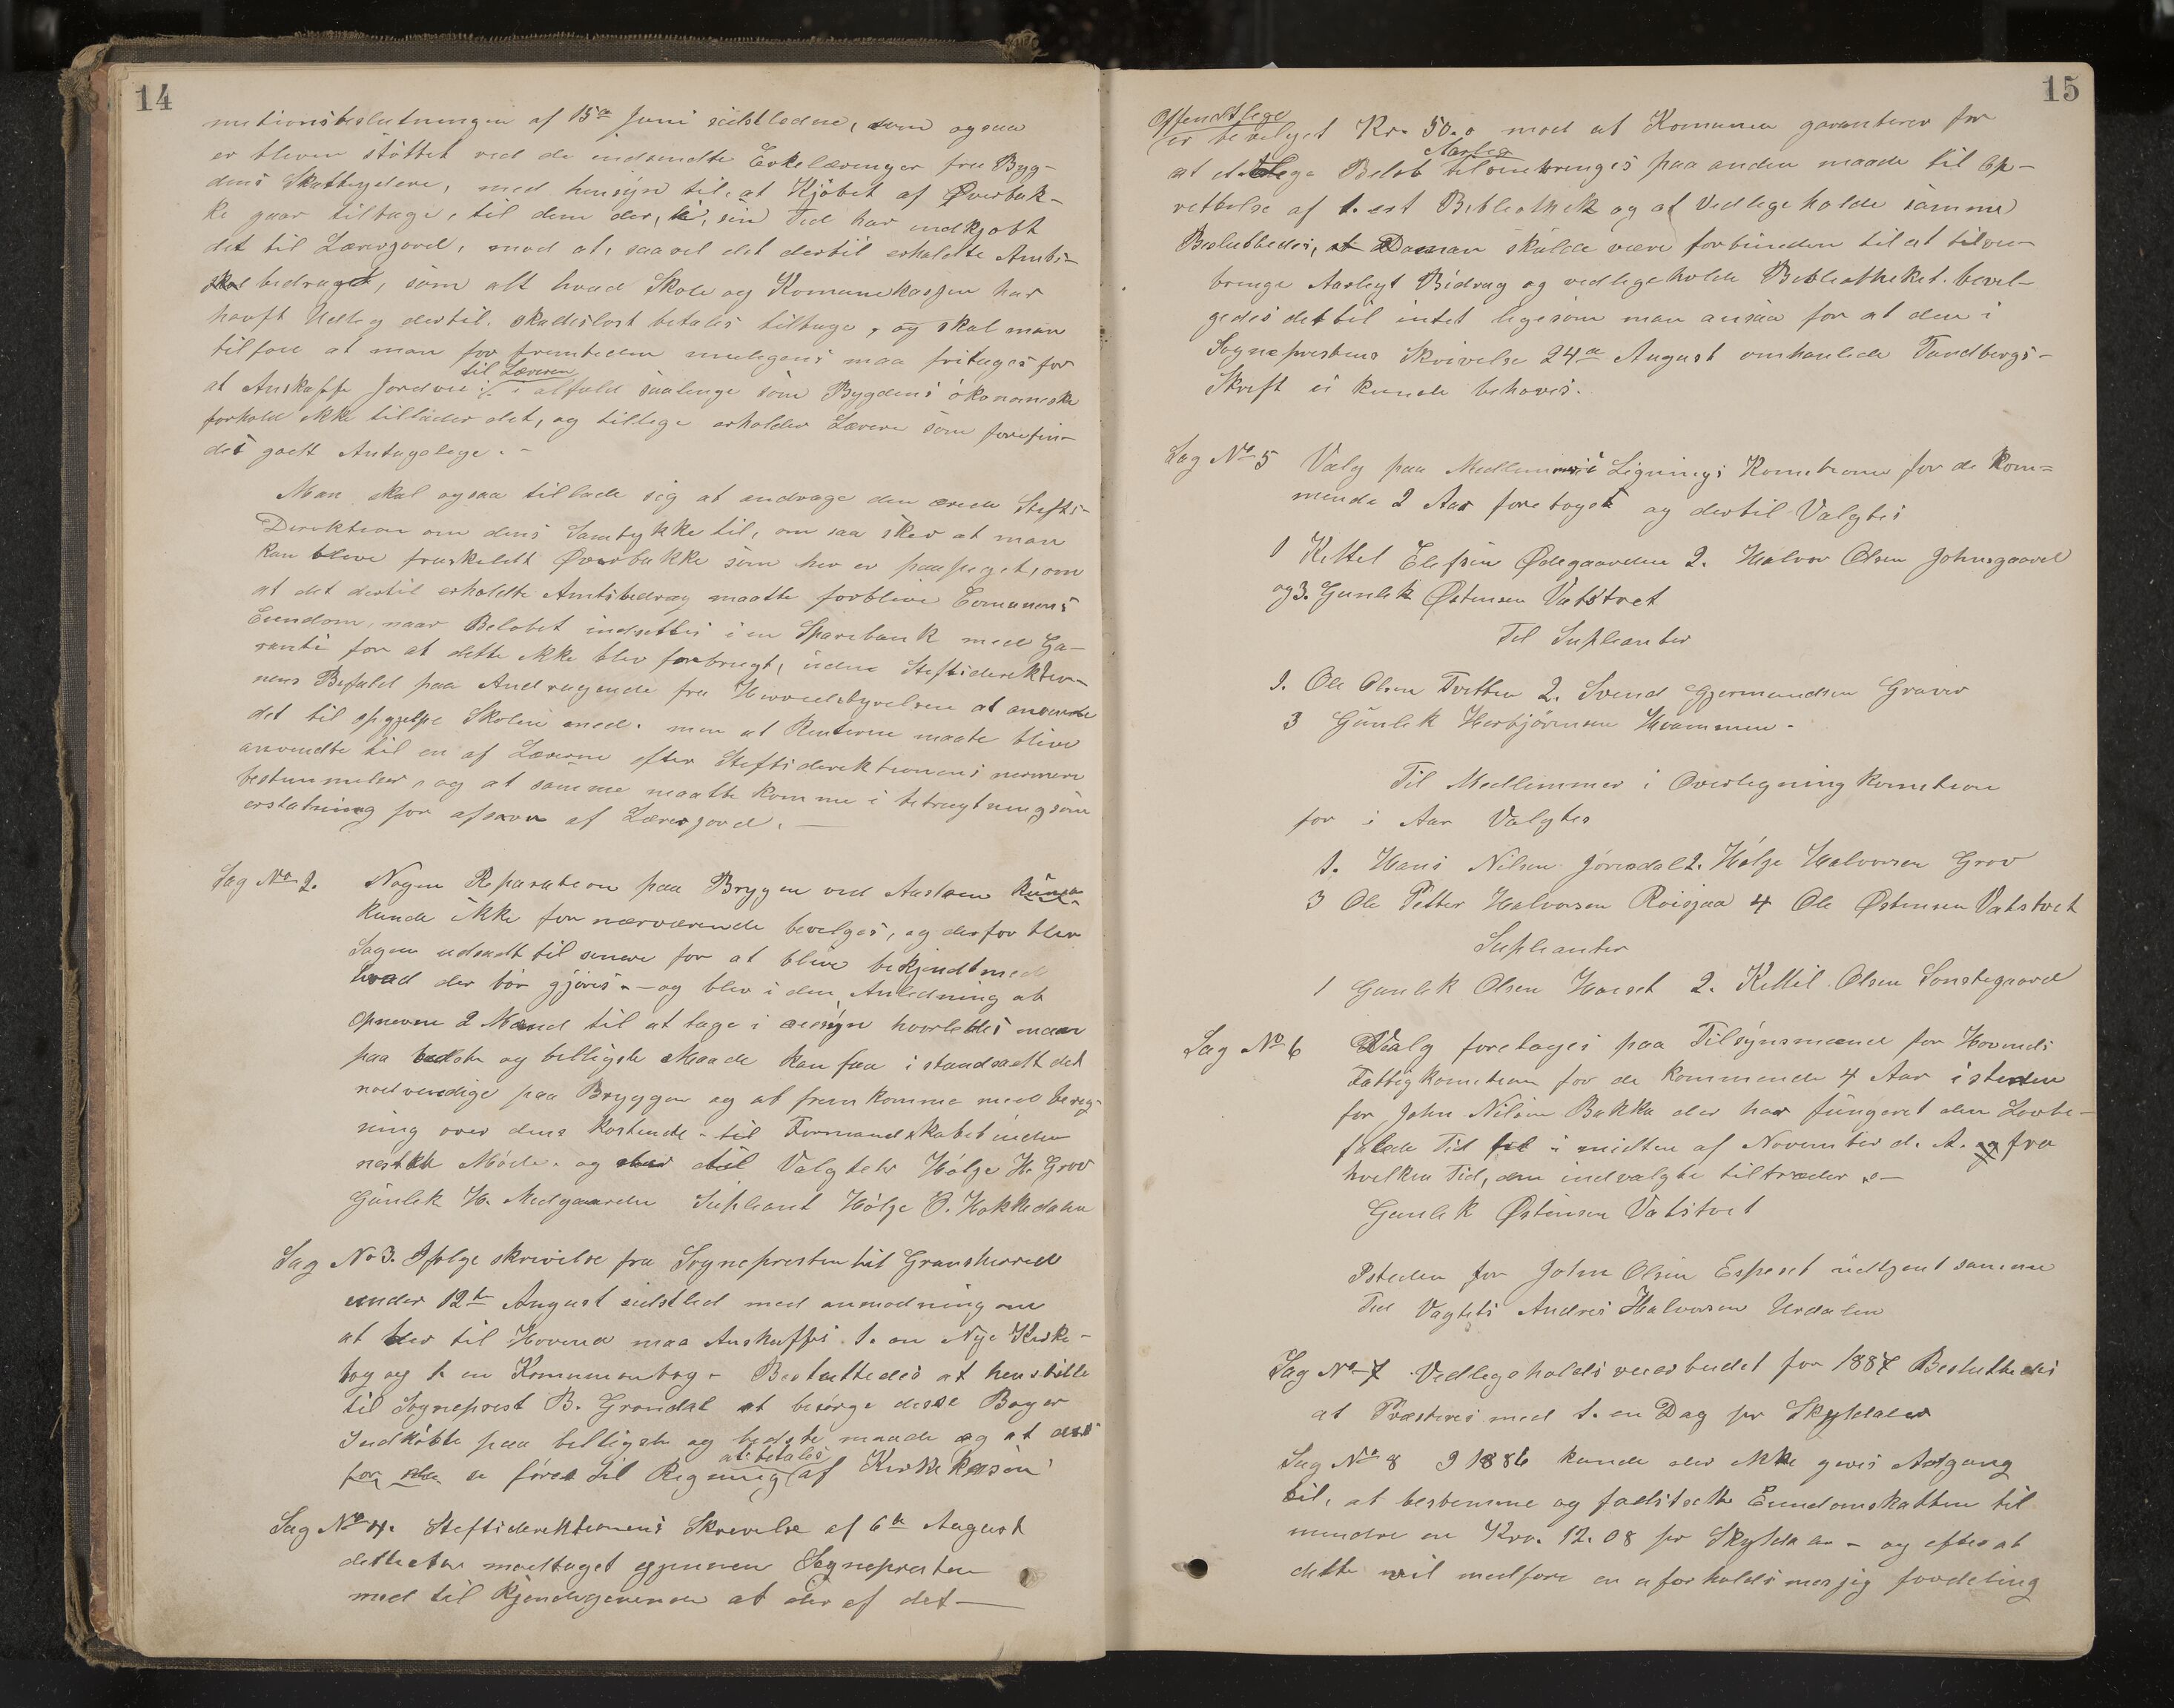 14
metionsbeslutningen af 15de Juni sidstledne, som ogsaa
er bleven støttet ved de indsendte Erkelæringer fra Byg-
dens Skatteydere, med hensyn til, at Kjøbet af Øverbak-
ke gaar tilbage, til dem der, i, sin Tid har indkjøbt
det til Lærerjord, mod at, saavel det dertil erholdte Amts-
skol bedraget, som alt hvad Skole og Komunekassen har
havft Udleg dertil. skadesløst betales tilbage, og skal man
tilføie at man for fremtiden muligens maa fritages for
til Læreren
at Anskaffe Jordvei i alfald saalenge som Bygdens økonomiske
forhold ikke tillader det, og tillige erholder Lærere som forefin-
des godt Antagelige. -
Man skal ogsaa tillade sig at andrage den ærede Stifts-
Direktion om dens Samtykke til, om saa sker at man
kan blive fraskeldt Øverbakke som her er paapeget, om
at det dertil erholdte Amtsbedrag maatte forblive Comunens
Eiendom, naar Beløbet indsettes i en Sparebank med Ga-
ranti for at dette ikke blev forbrugt, uden Stiftsderektio-
nens Befald paa Andragende fra Herredsstyrelsen at anvende
det til opgjelpe Skolen med. men at Renterne maate blive
anvendte til en af Lærerne efter Stiftsderektionens nermere
bestemmelser, og at samme maatte komme i betragtning som
erstatning for afsavn af Lærerjord. —
Sag No 2. Nogen Reparation paa Bryggen ved Aaslan
kunde ikke for nærværende bevelges, og derfor blev
Sagen udsadt til senere for at blive bekjendt med
hvad der bør gjøres - og blev i den Anledning at
Opnevne 2 Mænd til at tage i øiesyn hvorledes man
paa bedste og billigste Maade kan faa i standsadt det
nødvendige paa Bryggen og at fremkomme med bereg-
ning over dens kostende - til Formandskabet inden
neste Møde. og til Valgtes Hølge H. Grov
Gunlek H. Nedgaarden Supleant Hølge O. Hakkedalen
Sag No 3. Ifølge skrivelse fra Sognepresten til Gransherred
under 12te August sidstled med anmodning om
at der til Hovend maa Anskaffes 1. en Nye Kirke-
bog og 1. en Kommunenbog - Besluttedes at henstille
til Sogneprest B. Grøndal at besørge disse Bøger
Indkjøbte paa billigste og bedste maade og at
at betales
for føres til Regning af Kirkekassen
Sag No 4. Stiftsderektionens Skrivelse af 6te August
dette Aar modtaget gjennem Sognepresten
med til Kjendegivende at der af det —
15
Offendtlege
er bevelget Kr. 50.0 mod at Komunen garanterer for
Aarleg
at dettlege Beløb tilveiebringes paa anden maade til Op-
rettelse af 1. est Bibliothek og at Vedlegeholde samme
Besluttedes, at Daman skulde være forbunden til at tilvei-
bringe Aarlegt Bidrag og vedlegeholde Bibliotheket. bevel-
gedes dettil intet legesom man ansaa for at den i
Sogneprestens Skrivelse 24de August omhanlede Tandbergs-
Skrift ei kunde behøves.
Sag No 5 Valg paa Medlemmer i Lignings Komitionen for de kom-
mende 2 Aar foretoges og dertil Valgtes
1 Kettel Elefsen Ødegaarden 2. Halvor Olsen Johnsgaard
og 3. Gunlek Østensen Vatstvet
Til Supleanter
1. Ole Olsen Tvetten 2. Svend Gjermundsen Graver
3 Gunlek Herbjørnsen Hvammen -
Til Medlemmer i Overlegningkometion
for i Aar Valgtes
1. Hans Nilsen Jørisdal 2. Hølge Halvorsen Grov
3 Ole Petter Halvorsen Roisjaa 4 Ole Østensen Vatstvet
Supleanter
1 Gunlek Olsen Haaset 2. Kettil Olsen Sønstegaard
Sag No 6 Valg foretoges paa Tilsynsmænd for Hovends
Fattigkometion for de kommende 4 Aar isteden
for John Nilsen Bakka der har fungeret den Lovbe-
falede Tid i midten af November d. A. og fra
hvelken Tid, den indvalgte tiltræder. -
Gunlek Østensen Vatstvet
Isteden for John Olsen Espeset udtjent samme
Tid Vagtes Andres Halvorsen Urdalen
Sag No 7 Vedlegeholds veiarbeidet for 1887 Besluttedes
at Præsteres med 1. en Dag pr Skyldaler
Sag No 8 I 1886 kunde der ikke gives Adgang
til, at bestemme og fastsette Eiendomskatten til
mindre en Kr. 12.08 pr Skyldaler - og efter at
dette vil medføre en uforholdsmessig fordeling